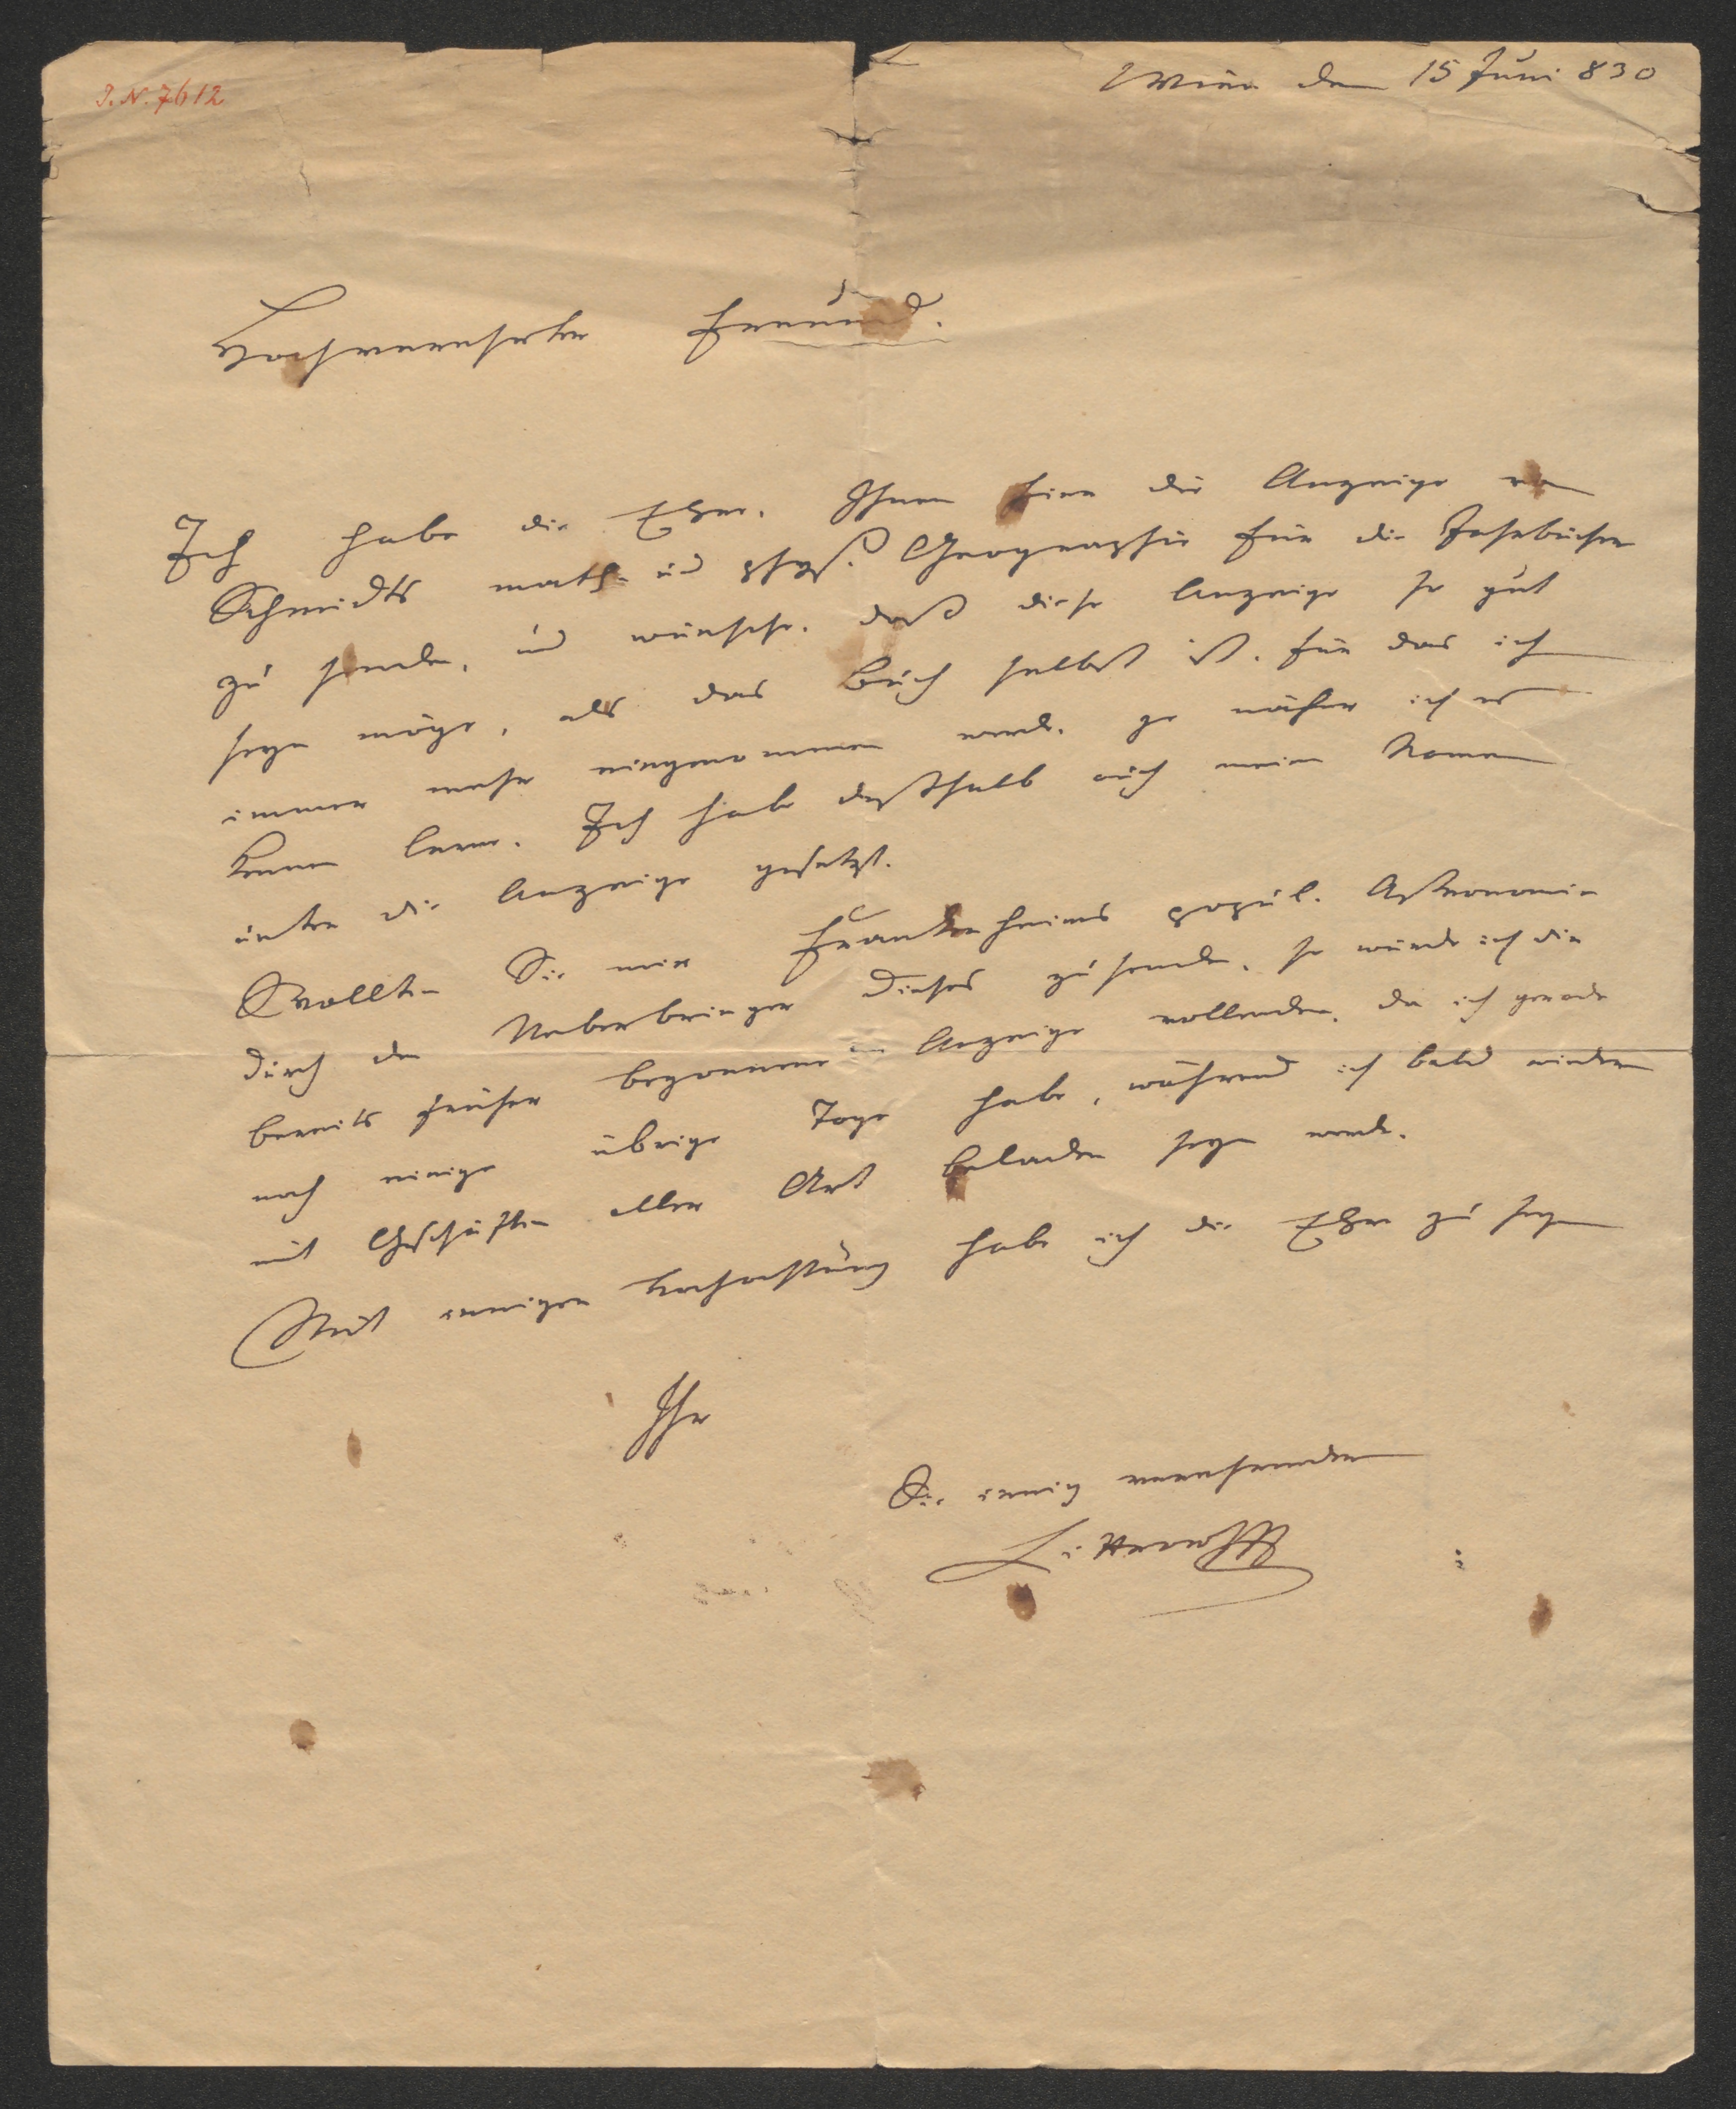 J. N. 7612
Wien den 15 Juni 830
Hochverehrter Freund.
Ich habe die Ehre, Ihnen hier die Anzeige von
Schmidts math. und phys. Geographie für die Jahrbücher
zu senden, und wünsche, daß diese Anzeige so gut
seyn möge, als das Buch selbst ist, für das ich
immer mehr eingenommen werde, je näher ich es
kennen lerne. Ich habe deßhalb auch meinen Namen
unter die Anzeige gesetzt.
Wollten Sie mir Frankenheims popul. Astronomie
durch den Ueberbringer dieses zusenden, so würde ich die
bereits früher begonnene Anzeige vollenden, da ich gerade
noch einige übrige Tage habe, während ich bald wieder
mit Geschäften aller Art beladen seyn werde.
Mit inniger Hochachtung habe ich die Ehre zu seyn
Ihr
Sie innig verehrender
Littrow